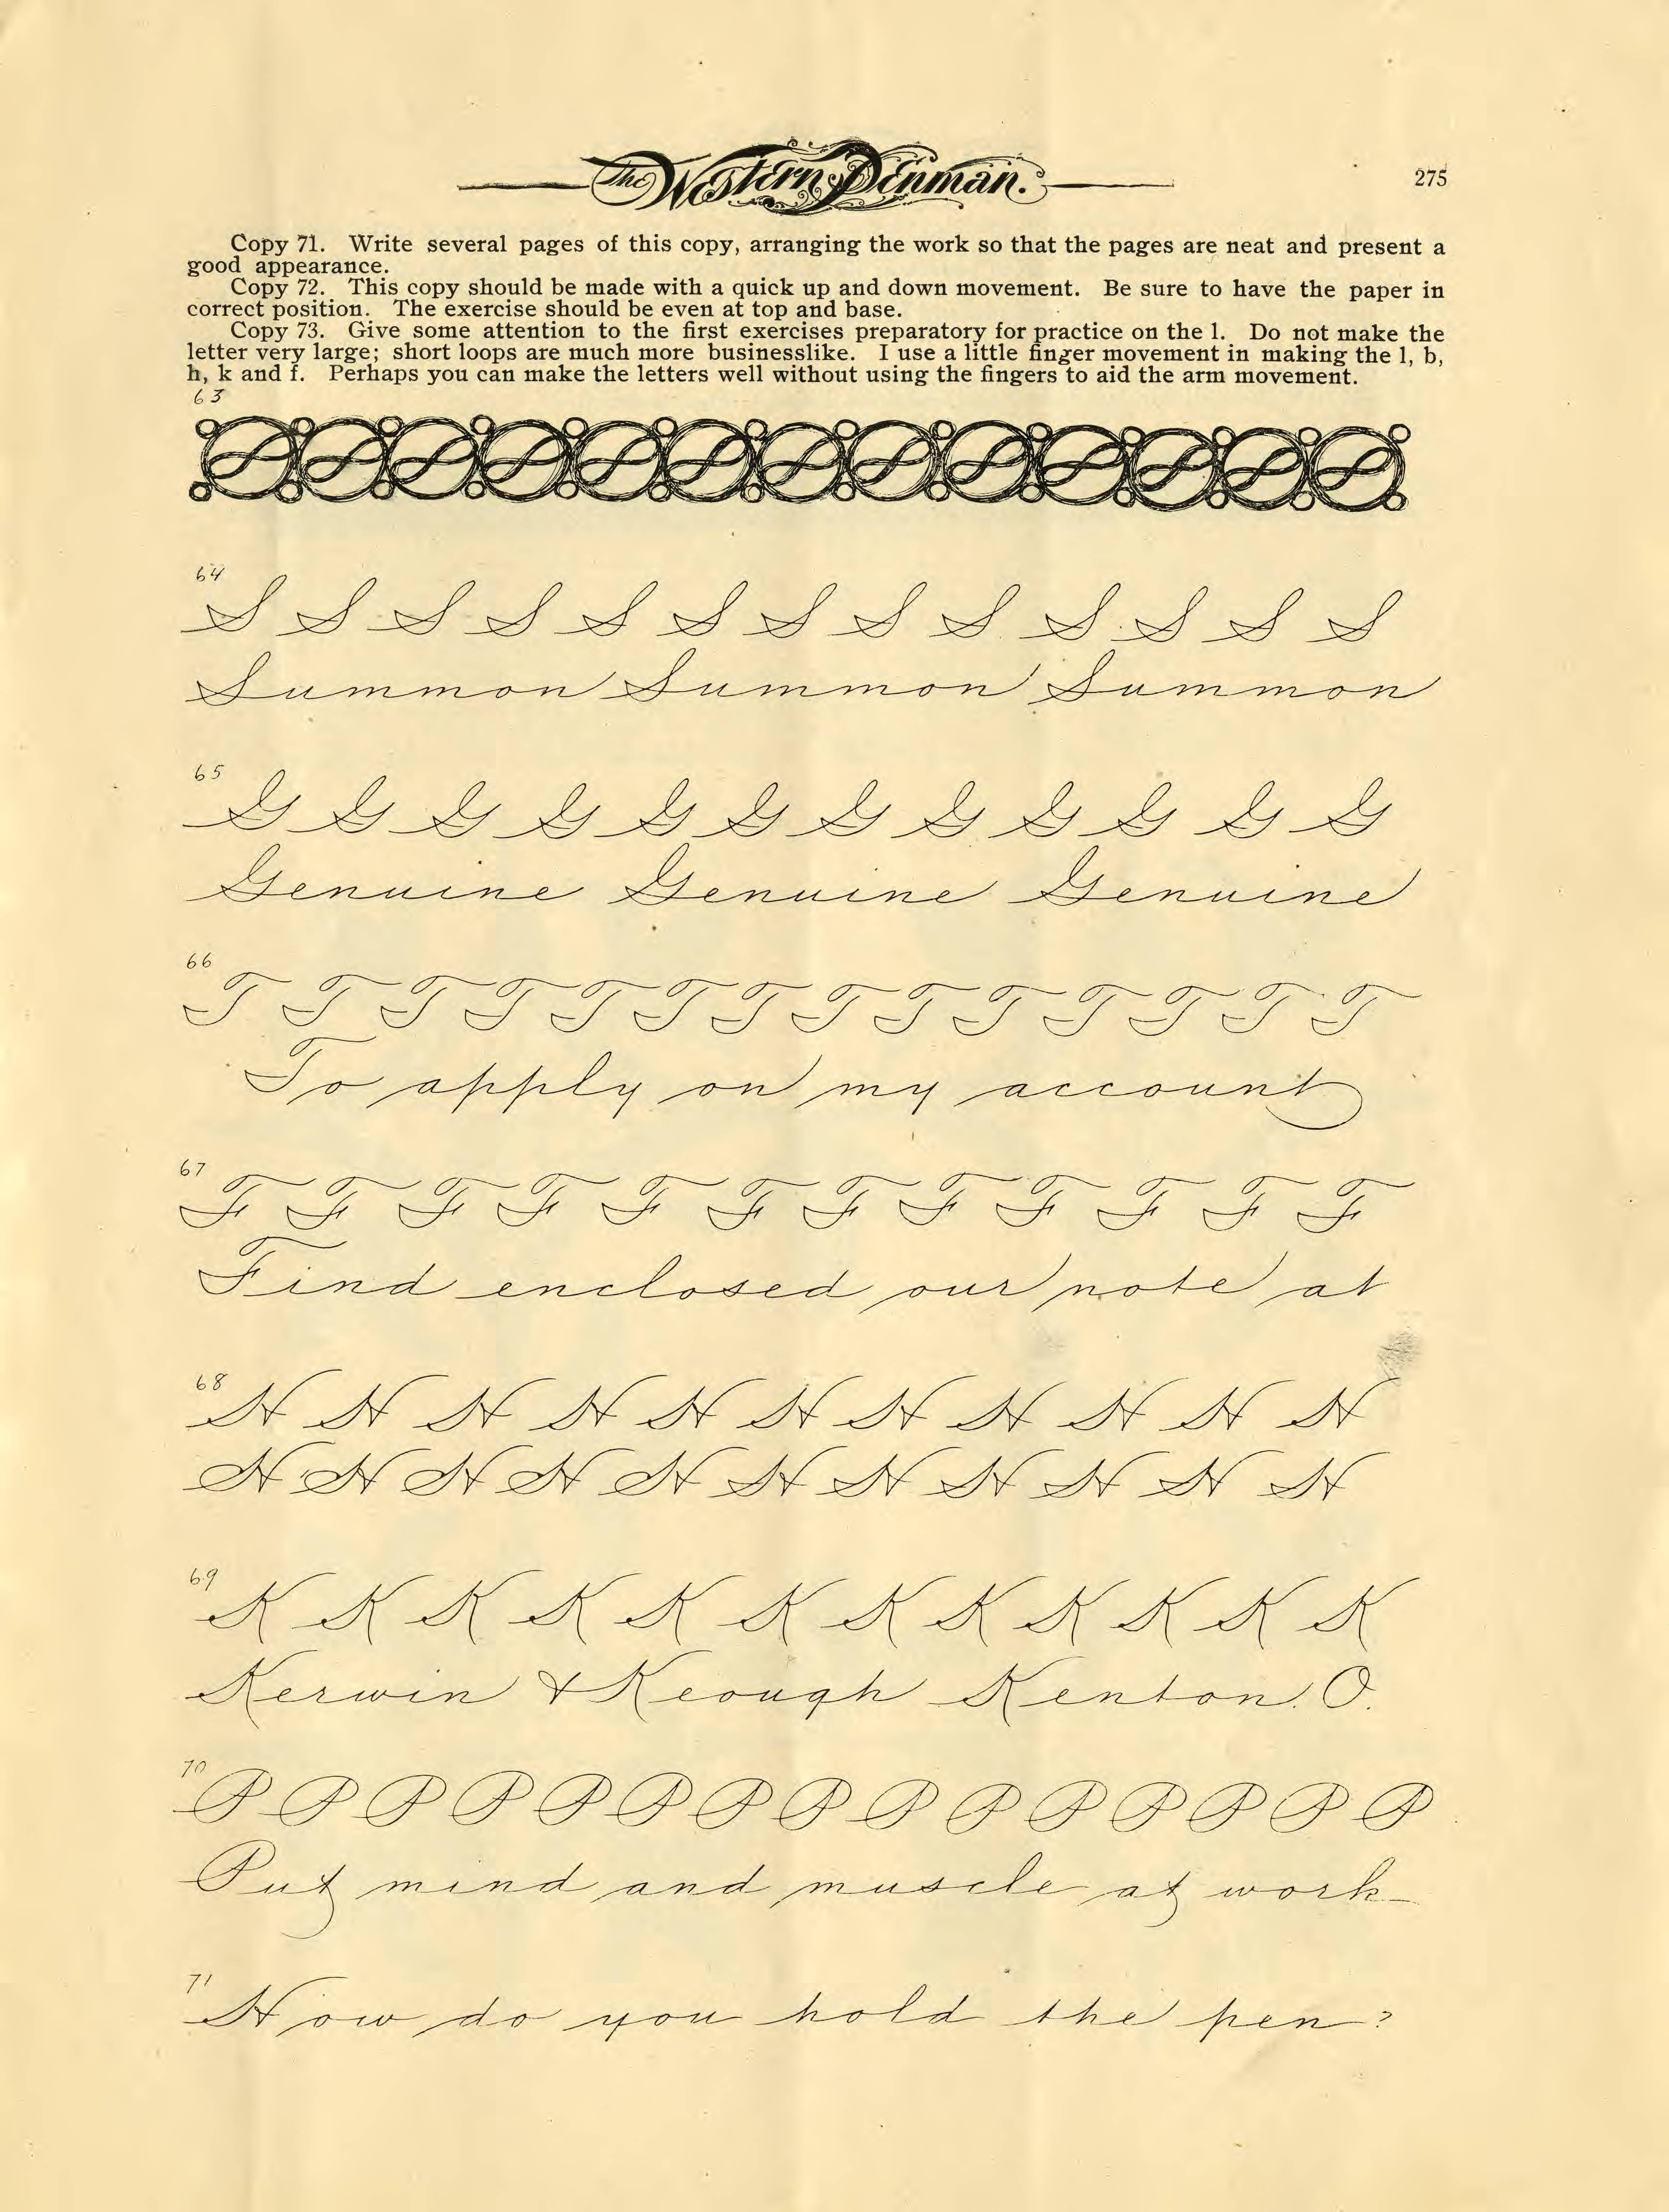 The Western Penman.
275
Copy 71. Write several pages of this copy, arranging the work so that the pages are neat and present a
good appearance.
Copy 72. This copy should be made with a quick up and down movement. Be sure to have the paper in
correct position. The exercise should be even at top and base.
Copy 73. Give some attention to the first exercises preparatory for practice on the l. Do not make the
letter very large; short loops are much more businesslike. I use a little finger movement in making the l, b,
h, k and f. Perhaps you can make the letters well without using the fingers to aid the arm movement.
63
64
S S S S S S S S S S S S S
Summon Summon Summon
65
G G G G G G G G G G G G
Genuine Genuine Genuine
66
T T T T T T T T T T T T T T
To apply on my account
67
F F F F F F F F F F F F
Find enclosed our note at
68
H H H H H H H H H H H
H H H H H H H H H H H
69
K K K K K K K K K K K K
Kerwin & Keough Kenton. O.
70
P P P P P P P P P P P P P P P
Put mind and muscle at work
71
How do you hold the pen?